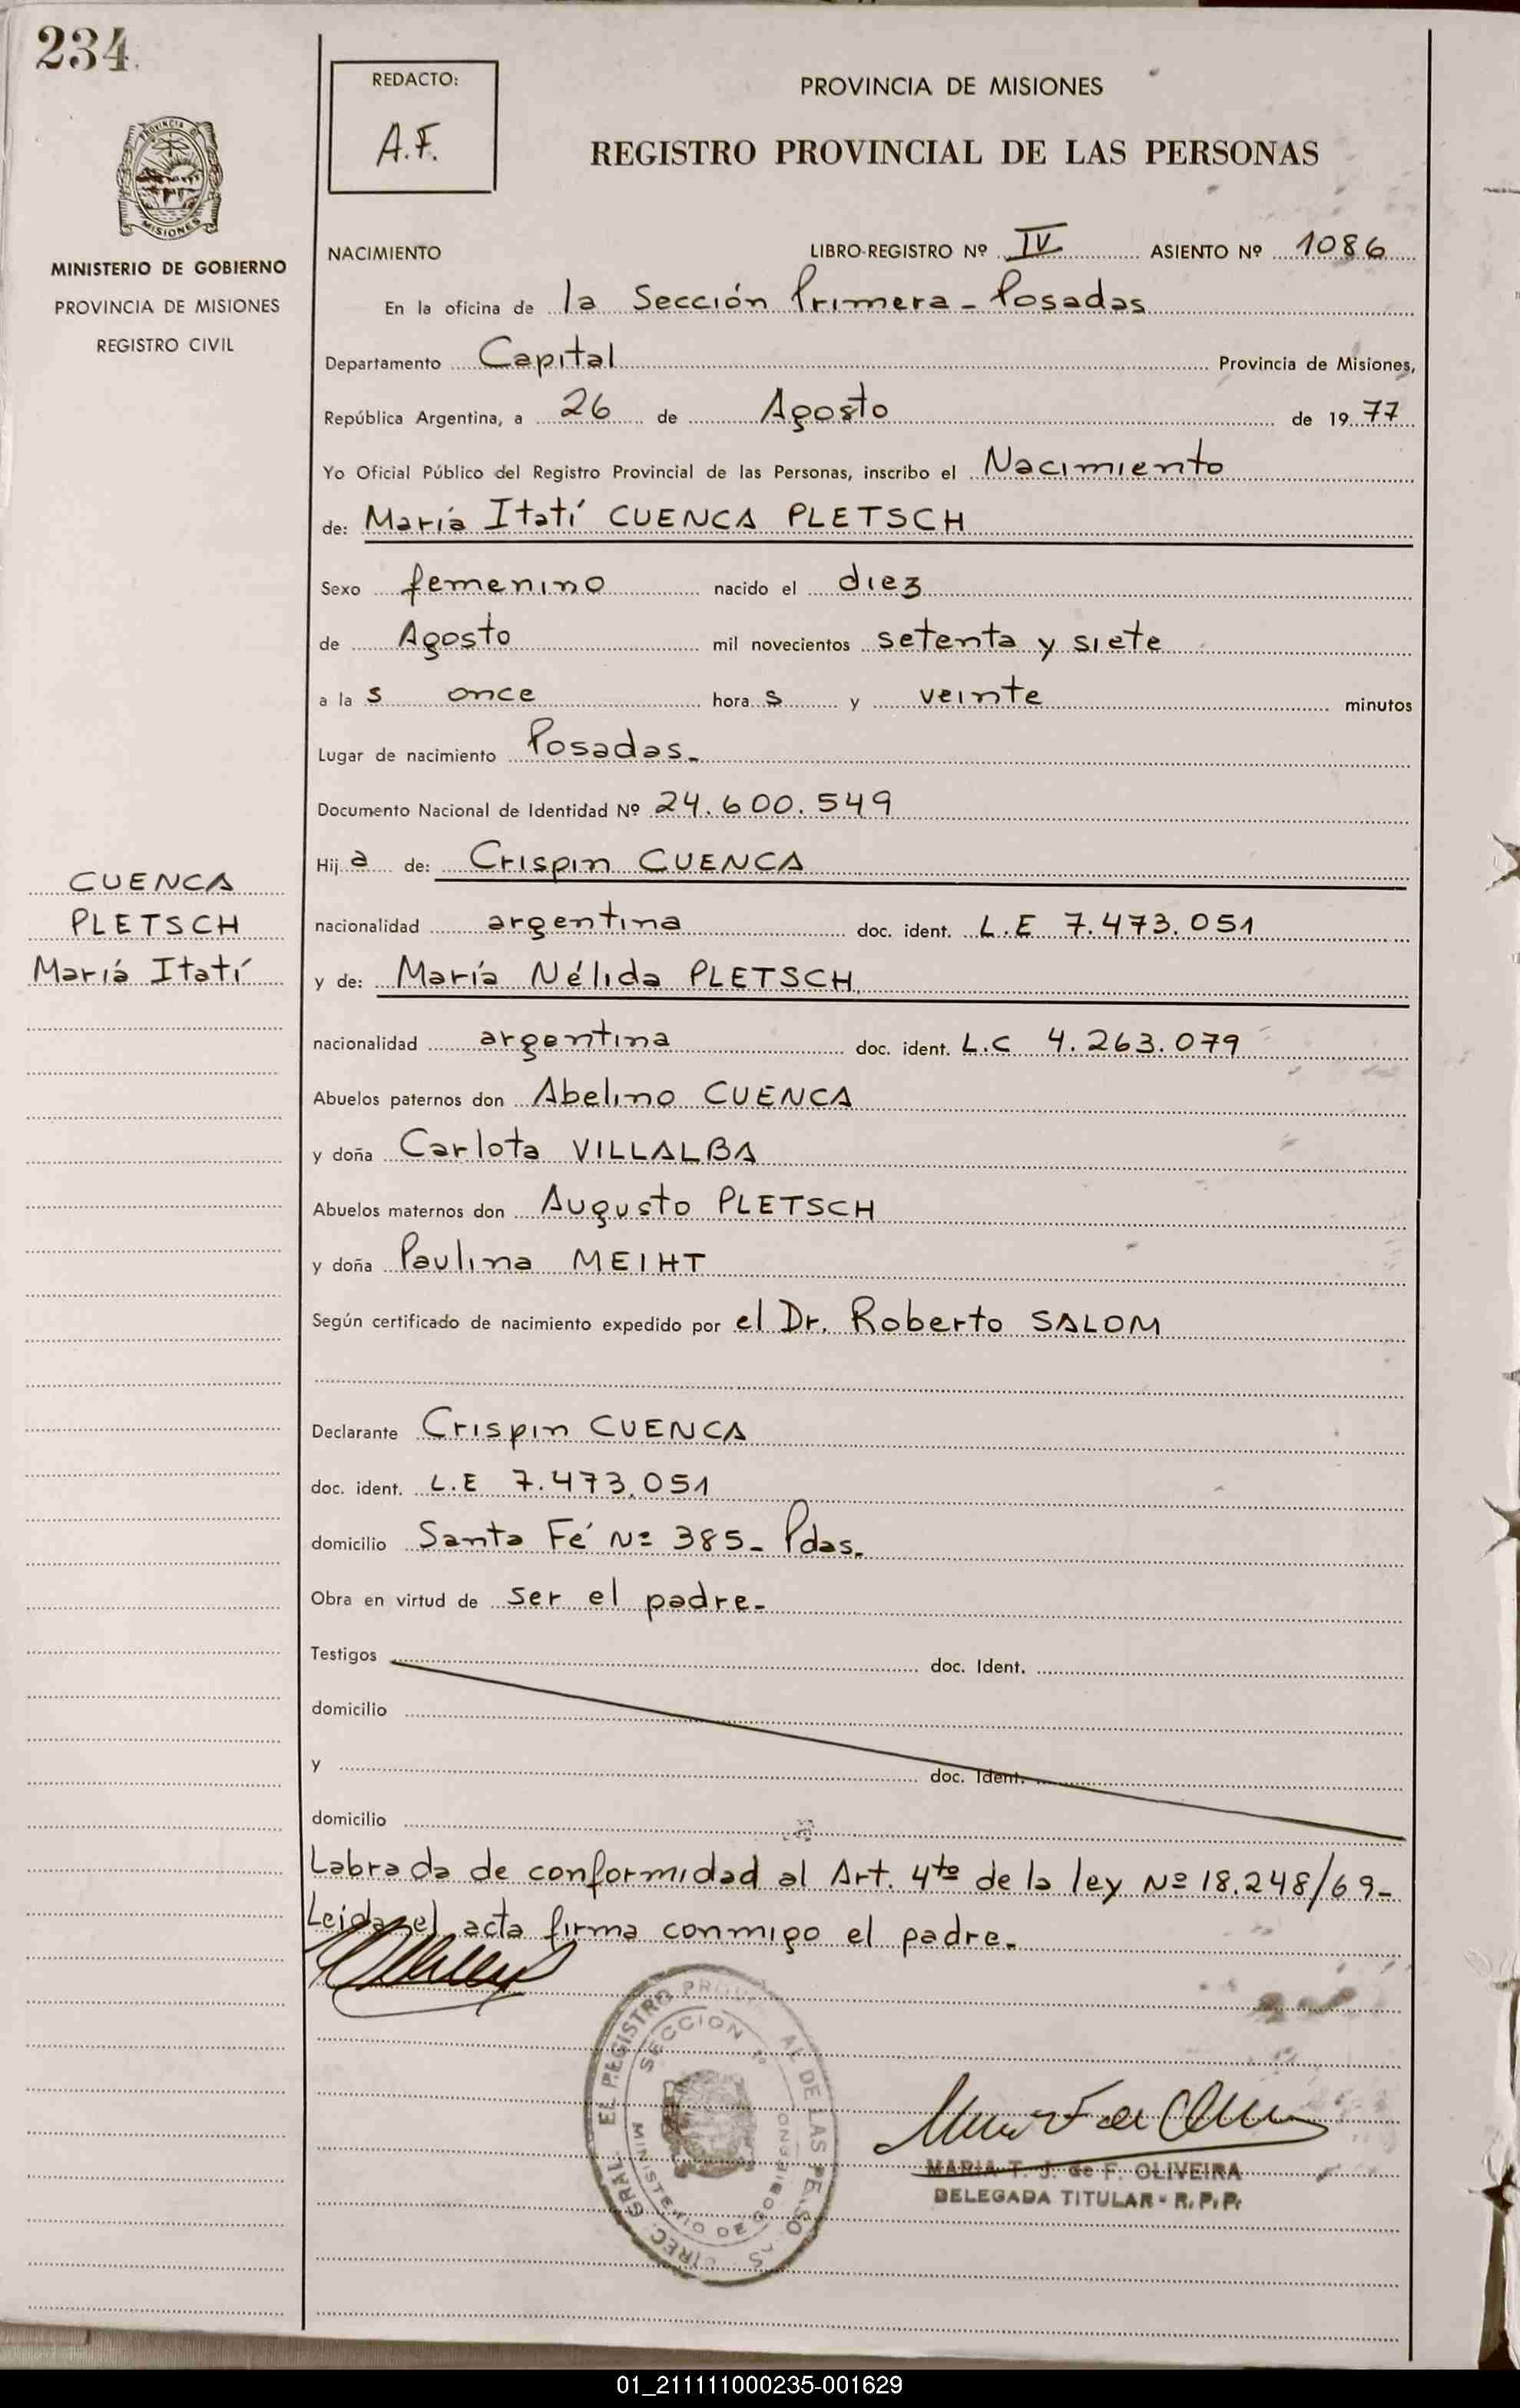 234.
REDACTO:
A.F.
PROVINCIA DE MISIONES
REGISTRO PROVINCIAL DE LAS PERSONAS
PROVINCIA DE
MISIONES
MINISTERIO DE GOBIERNO
PROVINCIA DE MISIONES
REGISTRO CIVIL
NACIMIENTO LIBRO-REGISTRO Nº IV ASIENTO Nº 1086
En la oficina de la Sección Primera - Posadas
Departamento Capital Provincia de Misiones,
República Argentina, a 26 de Agosto de 1977
Yo Oficial Público del Registro Provincial de las Personas, inscribo el Nacimiento
de: María Itatí CUENCA PLETSCH
Sexo femenino nacido el diez
de Agosto mil novecientos setenta y siete
a la s once hora s y veinte minutos
Lugar de nacimiento Posadas.
Documento Nacional de Identidad Nº 24.600.549
Hij a de: Crispin CUENCA
CUENCA
PLETSCH
Mariá Itatí
nacionalidad argentina doc. ident. L.E 7.473.051
y de: María Nélida PLETSCH
nacionalidad argentina doc. ident. L.C 4.263.079
Abuelos paternos don Abelino CUENCA
y doña Carlota VILLALBA
Abuelos maternos don Augusto PLETSCH
y doña Paulina MEIHT
Según certificado de nacimiento expedido por el Dr. Roberto SALOM
Declarante Crispin CUENCA
doc. ident. L.E 7.473.051
domicilio Santa Fé Nº 385- Pdas.
Obra en virtud de ser el padre-
Testigos doc. Ident.
domicilio
y doc. Ident.
domicilio
Labrada de conformidad al Art. 4to de la ley Nº 18.248/69-
Leida el acta firma conmigo el padre.
DIREC. GRAL. EL REGISTRO PROVI AL DE LAS PERSO AS
SECCION 1º
MINISTERIO DE GOBIERNO
MARIA T. J. de F. OLIVEIRA
DELEGADA TITULAR - R.P.P.
01_211111000235-001629